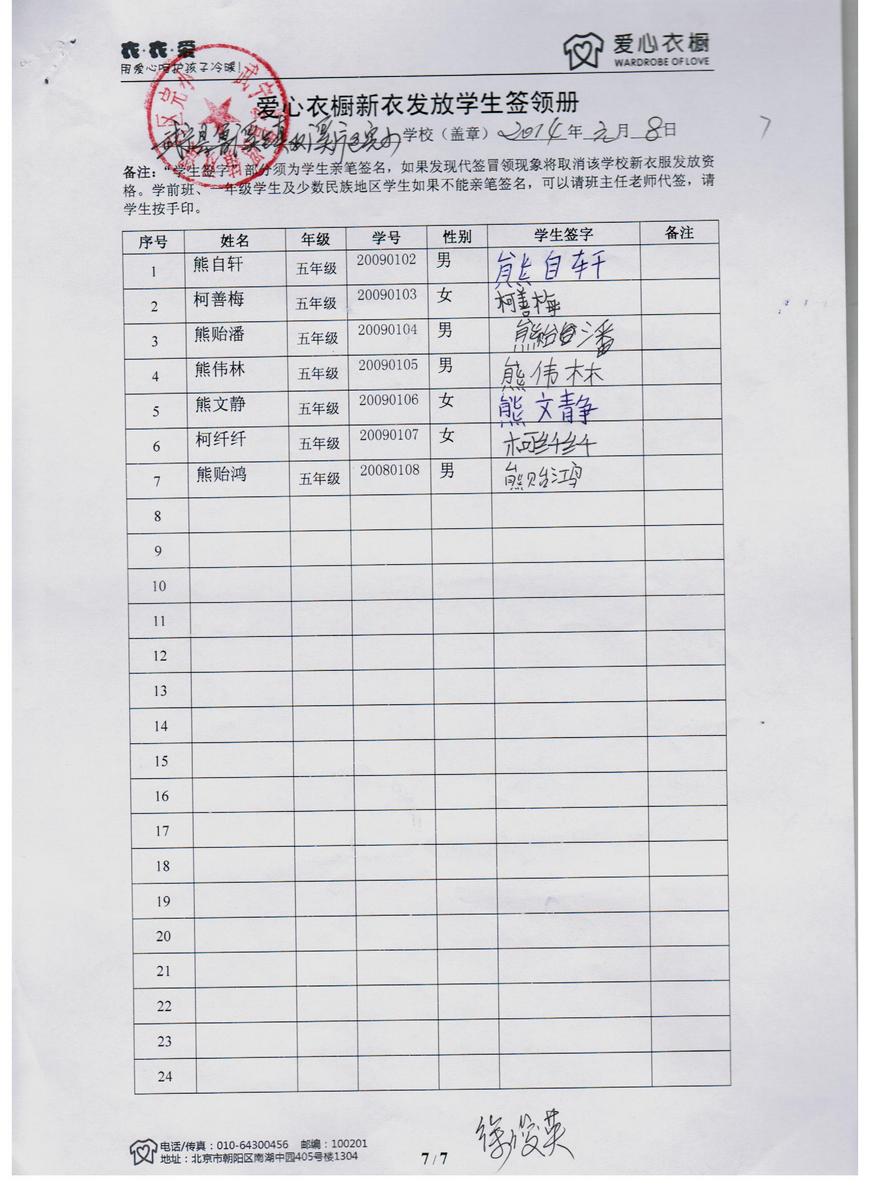 衣·衣·爱
用爱心呵护孩子冷暖!
爱心衣橱
WARDROBE OF LOVE
爱心衣橱新衣发放学生签领册
学校（盖章） 2014 年 元 月 8 日
7
备注："学生签字"部分须为学生亲笔签名，如果发现代签冒领现象将取消该学校新衣服发放资
格。学前班、一年级学生及少数民族地区学生如果不能亲笔签名，可以请班主任老师代签，请
学生按手印。
序号 姓名 年级 学号 性别 学生签字 备注
1 熊自轩 五年级 20090102 男 熊自轩
2 柯善梅 五年级 20090103 女 柯善梅
3 熊贻潘 五年级 20090104 男 熊贻潘
4 熊伟林 五年级 20090105 男 熊伟林
5 熊文静 五年级 20090106 女 熊文静
6 柯纤纤 五年级 20090107 女 柯纤纤
7 熊贻鸿 五年级 20080108 男 熊贻鸿
8
9
10
11
12
13
14
15
16
17
18
19
20
21
22
23
24
徐俊英
电话/传真：010-64300456 邮编：100201
地址：北京市朝阳区南湖中园405号楼1304
7 / 7